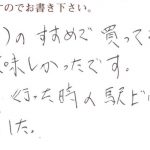 すのでお書き下さい。
)のすすめで買って
味しかったです。
行った時の駅ビ
した。